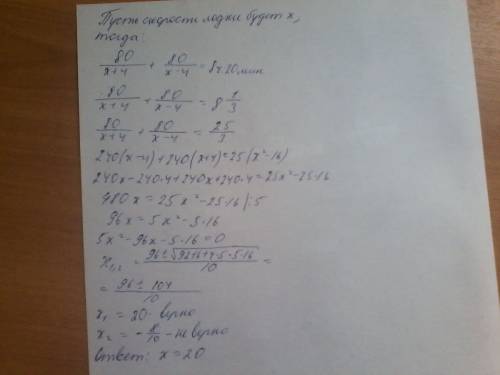 Пусть скорость лодки будет x,
тогда:
80/(x+4) + 80/(x-4) = 8ч.20мин
80/(x+4) + 80/(x-4) = 8 1/3
80/(x+4) + 80/(x-4) = 25/3
240(x-4)+240(x+4)=25(x²-16)
240x-240·4+240x+240·4=25x²-25·16
480x=25x²-25·16 |:5
96x=5x²-5·16
5x²-96x-5·16=0
x₁,₂ = (96±√(9216+4·5·5·16))/10 =
= (96±104)/10
x₁ = 20 - верно
x₂ = -8/10 - не верно
ответ: x=20